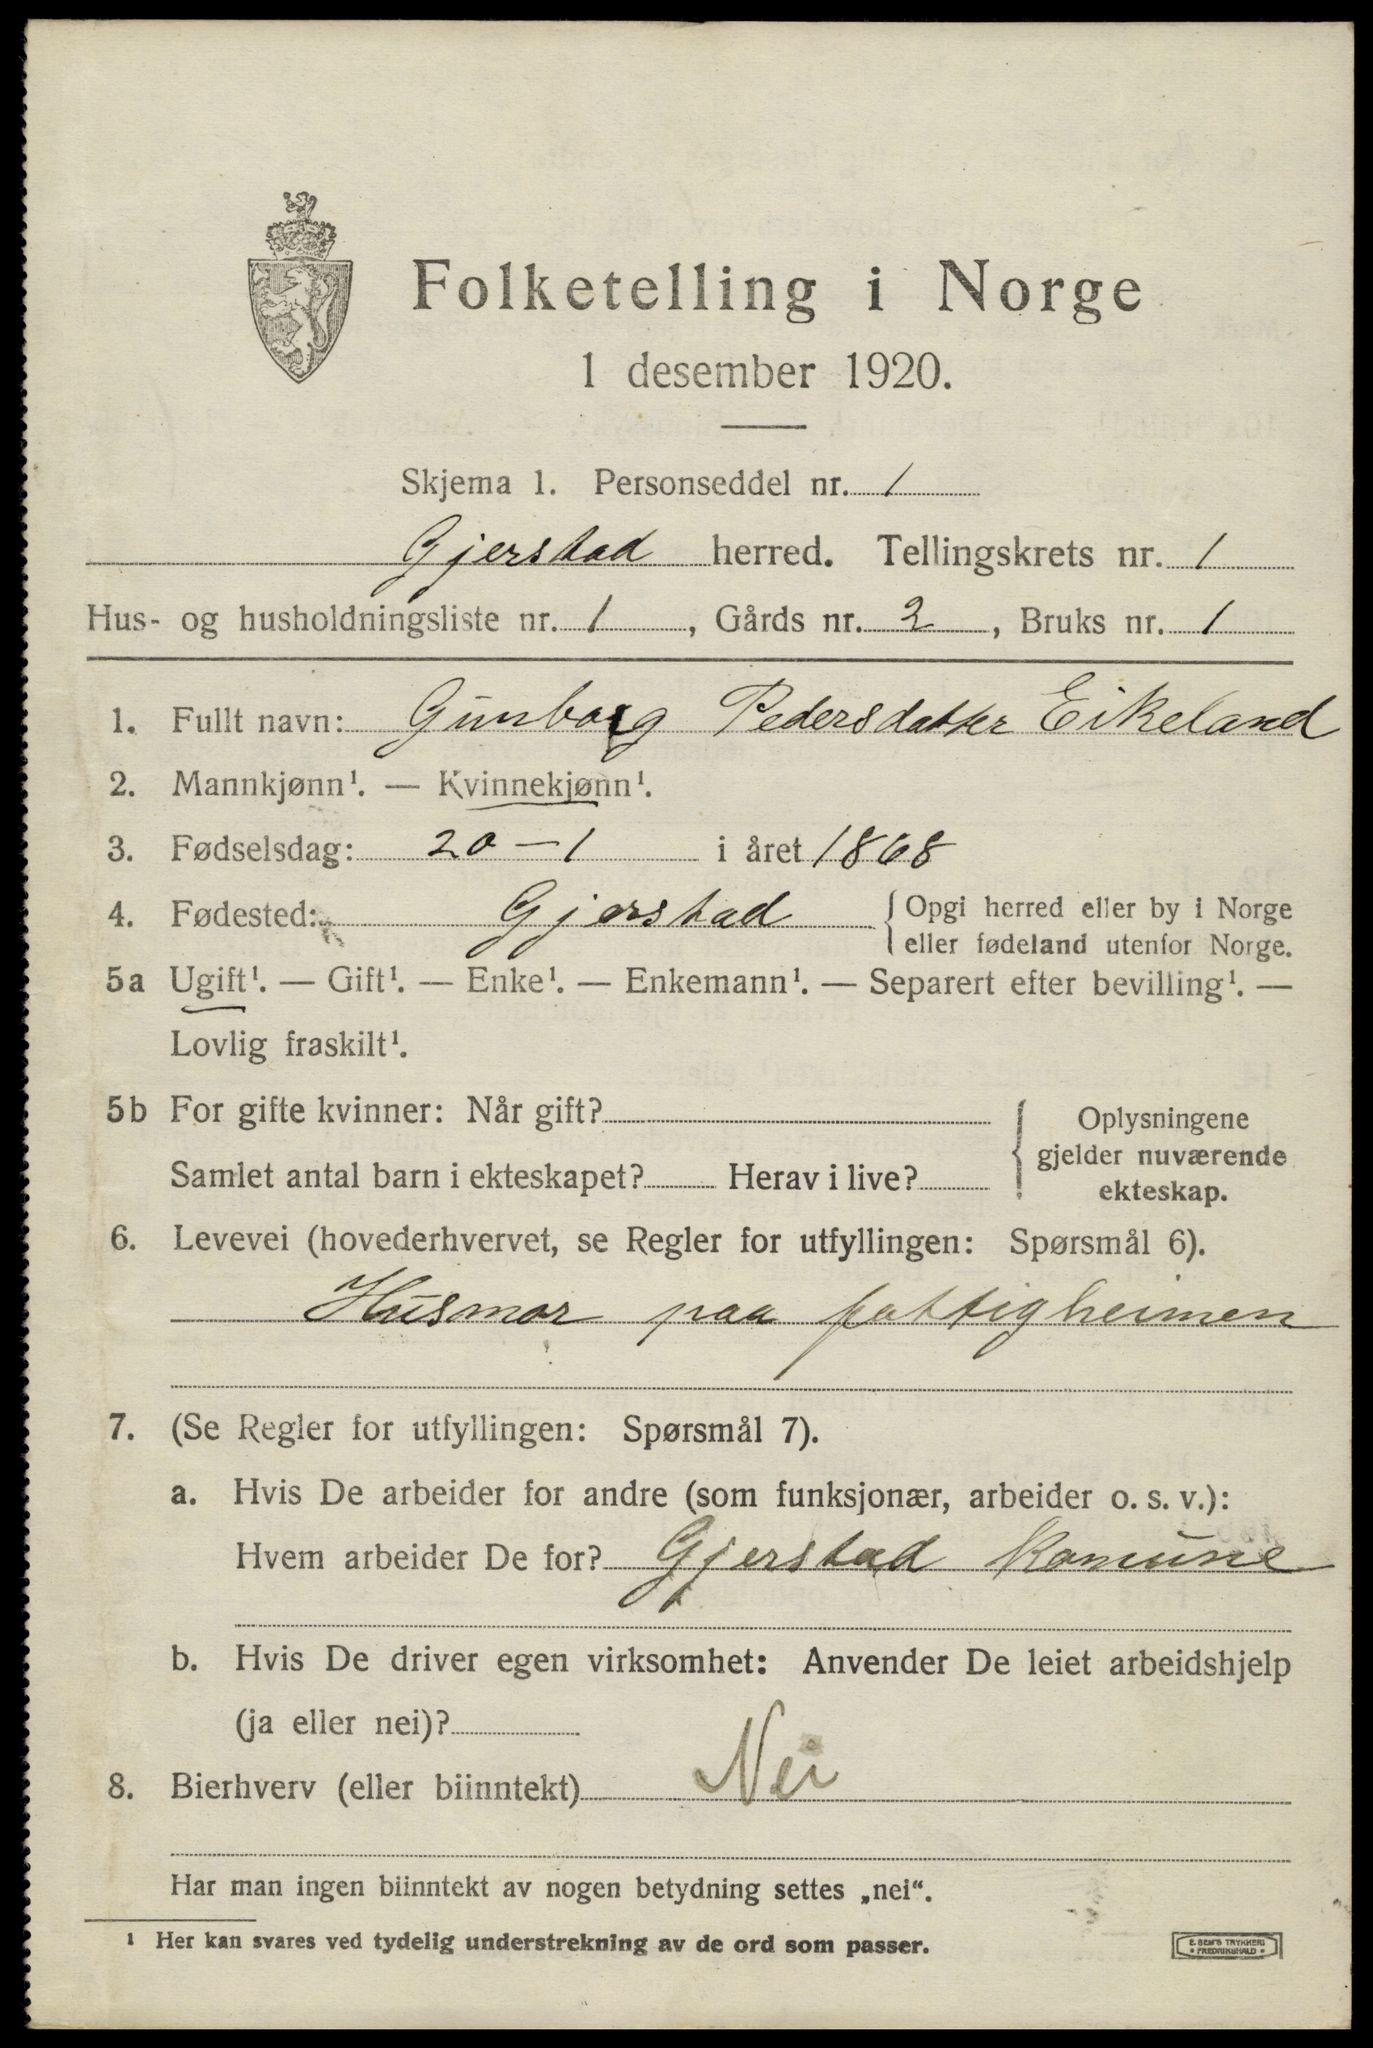 Folketelling i Norge
1 desember 1920.
Skjema 1. Personseddel nr. 1
Gjerstad herred. Tellingskrets nr. 1
Hus- og husholdningsliste nr. 1, Gårds nr. 2, Bruks nr. 1
1. Fullt navn: Gunborg Pedersdatter Eikeland
2. Mannkjønn¹. — Kvinnekjønn¹.
3. Fødselsdag: 20 – 1 i året 1868
4. Fødested: Gjerstad { Opgi herred eller by i Norge
eller fødeland utenfor Norge.
5a Ugift¹. — Gift¹. — Enke¹. — Enkemann¹. — Separert efter bevilling¹. —
Lovlig fraskilt¹.
5b For gifte kvinner: Når gift?
Samlet antal barn i ekteskapet? Herav i live?
{ Oplysningene
gjelder nuværende
ekteskap.
6. Levevei (hovederhvervet, se Regler for utfyllingen: Spørsmål 6).
Husmor paa fattigheimen
7. (Se Regler for utfyllingen: Spørsmål 7).
a. Hvis De arbeider for andre (som funksjonær, arbeider o. s. v.):
Hvem arbeider De for? Gjerstad Komune
b. Hvis De driver egen virksomhet: Anvender De leiet arbeidshjelp
(ja eller nei)?
8. Bierhverv (eller biinntekt) Nei
Har man ingen biinntekt av nogen betydning settes „nei“.
¹ Her kan svares ved tydelig understrekning av de ord som passer.
E. SEM'S TRYKKERI
• FREDRIKSHALD •